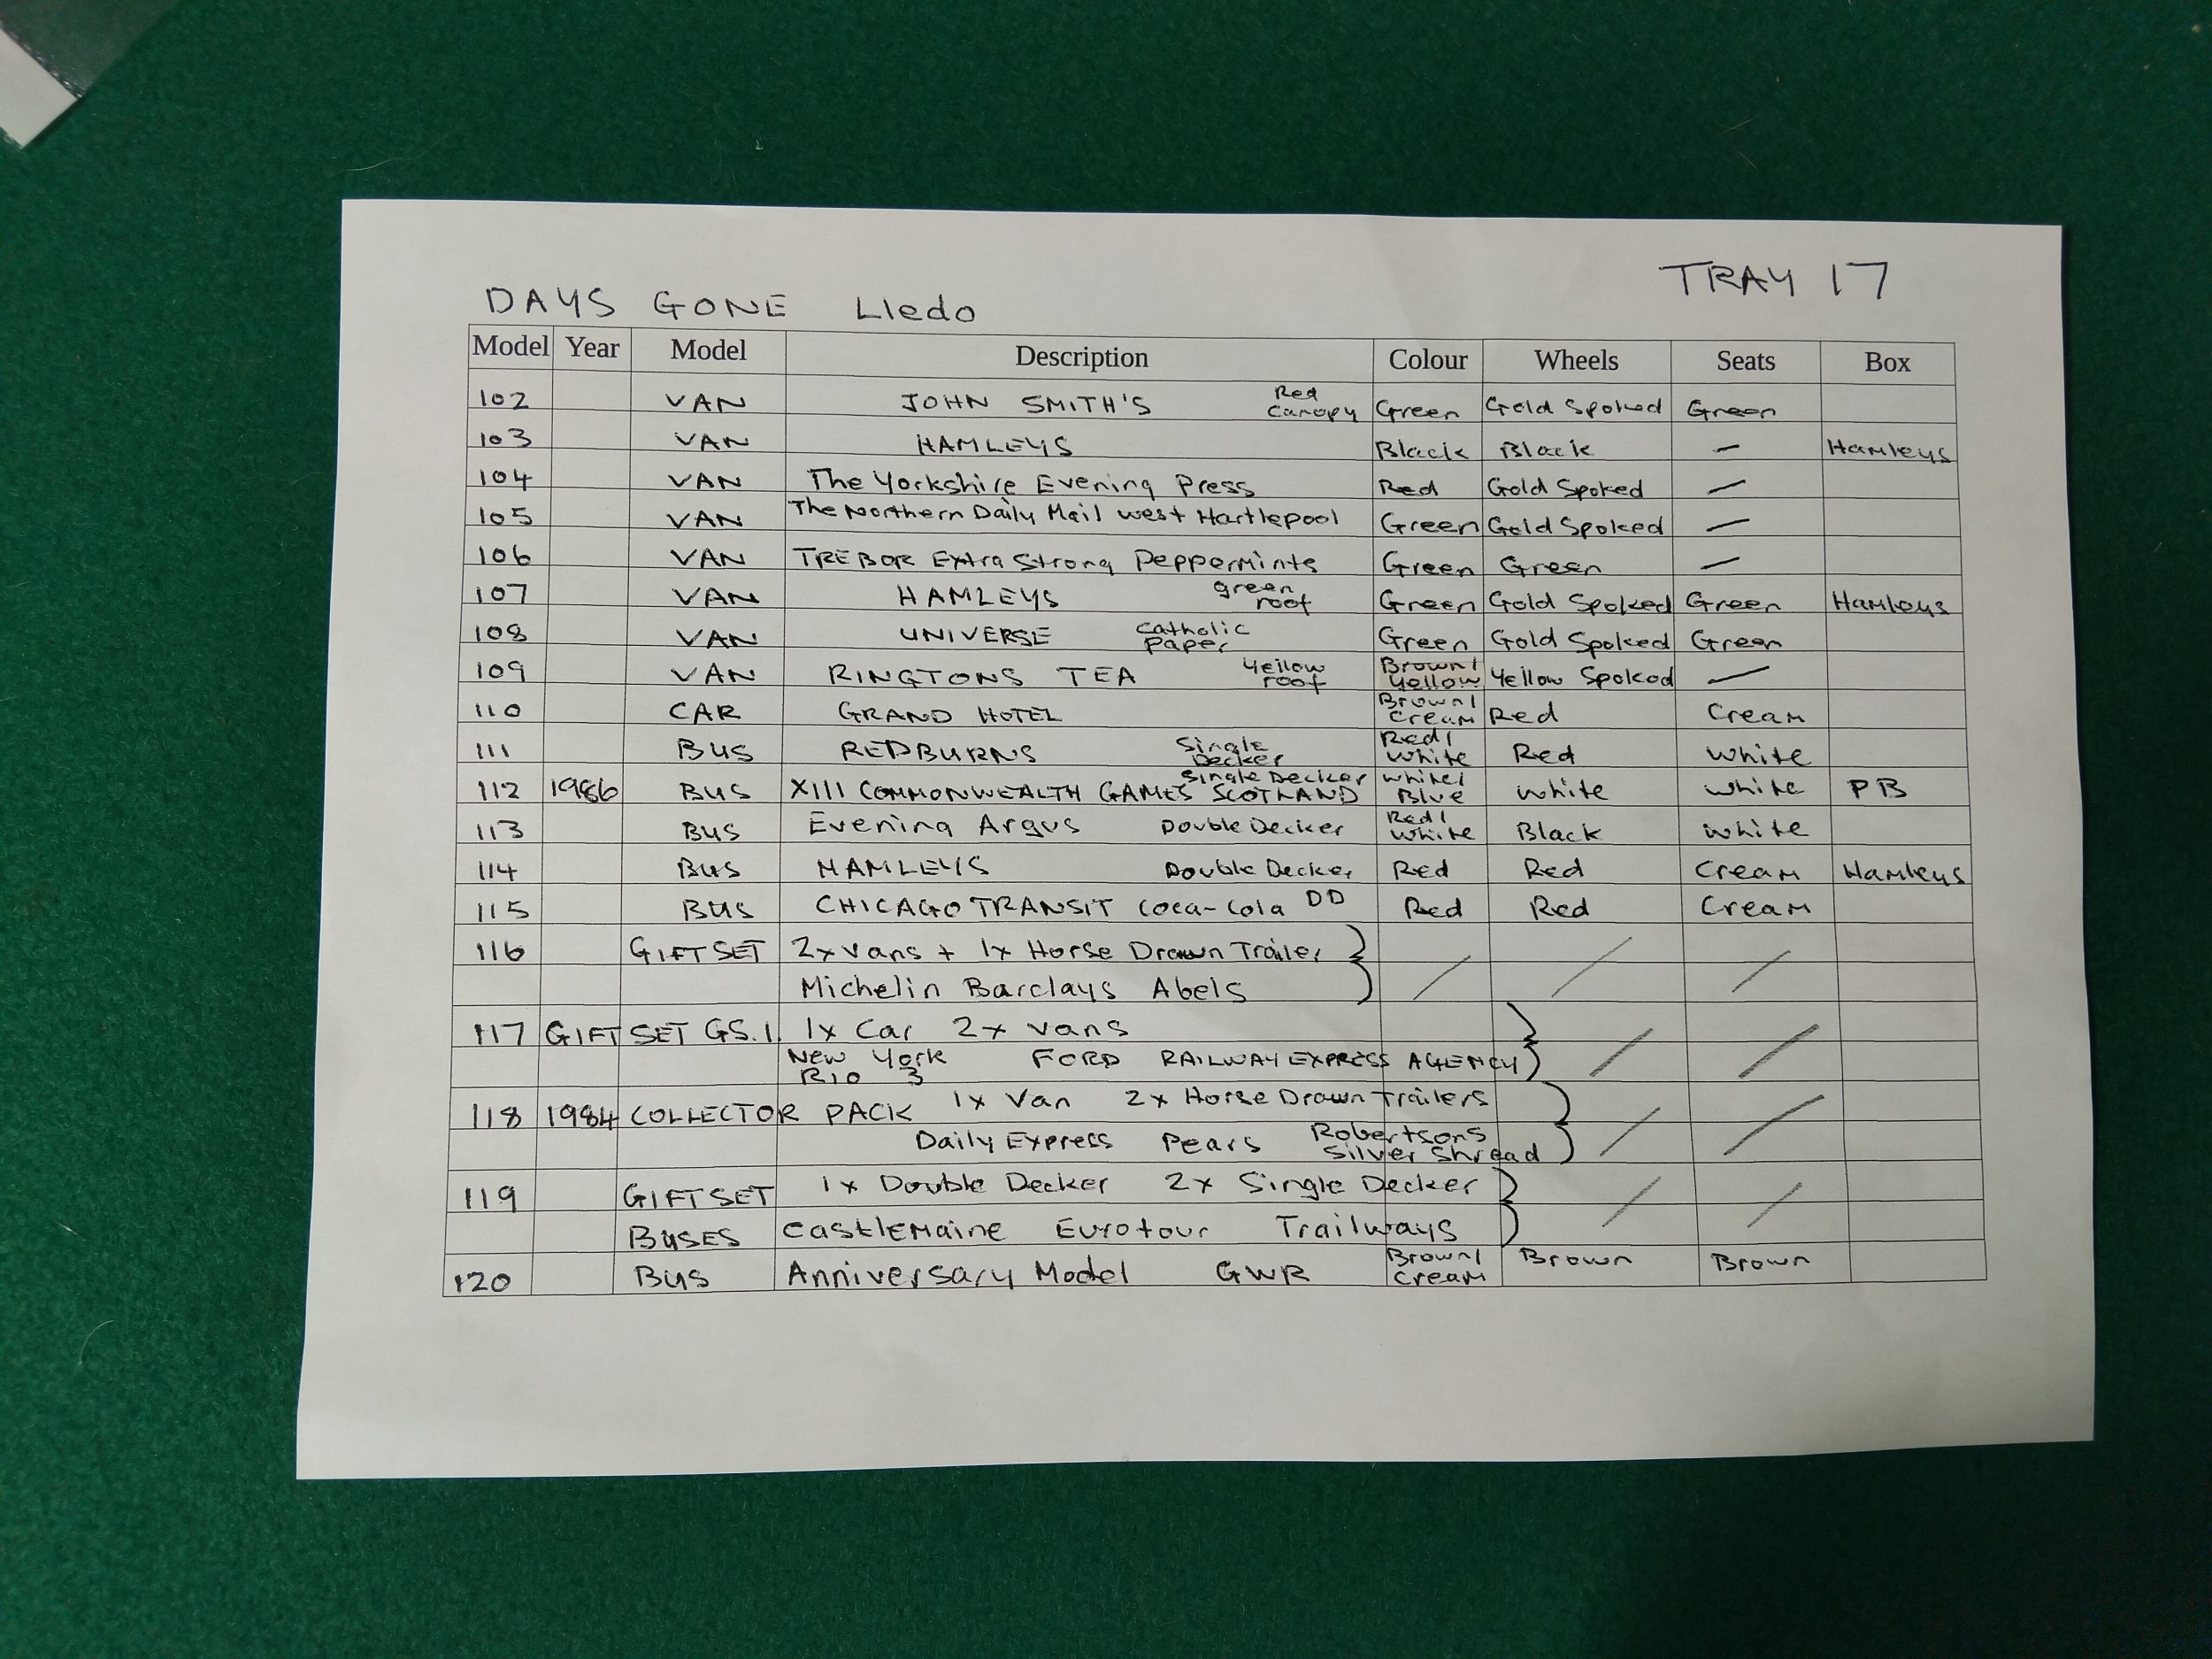 TRAY 17
DAYS GONE Lledo
Model Year Model Description Colour Wheels Seats Box
102 VAN JOHN SMITH'S Red Canopy Green Gold Spoked Green
103 VAN HAMLEYS Black Black - Hamleys
104 VAN The Yorkshire Evening Press Red Gold Spoked -
105 VAN The Northern Daily Mail west Hartlepool Green Gold Spoked -
106 VAN TREBOR Extra Strong Peppermints Green Green -
107 VAN HAMLEYS green roof Green Gold Spoked Green Hamleys
108 VAN UNIVERSE Catholic Paper Green Gold Spoked Green
109 VAN RINGTONS TEA Yellow roof Brown/Yellow Yellow Spoked -
110 CAR GRAND HOTEL Brown/Cream Red Cream
111 BUS REDBURNS Single Decker Red/White Red White
112 1986 BUS XIII COMMONWEALTH GAMES SCOTLAND Single Decker White/Blue White White PB
113 BUS Evening Argus Double Decker Red/White Black White
114 BUS HAMLEYS Double Decker Red Red Cream Hamleys
115 BUS CHICAGO TRANSIT Coca-Cola DD Red Red Cream
116 GIFT SET 2x Vans + 1x Horse Drawn Trailer } / / /
Michelin Barclays Abels
117 GIFT SET GS.1. 1x Car 2x Vans } / /
New York FORD RAILWAY EXPRESS AGENCY
RIO 3
118 1984 COLLECTOR PACK 1x Van 2x Horse Drawn Trailers } / /
Daily Express Pears Robertsons
Silver Shread
119 GIFT SET 1x Double Decker 2x Single Decker } / /
BUSES Castlemaine Eurotour Trailways
120 BUS Anniversary Model GWR Brown/Cream Brown Brown